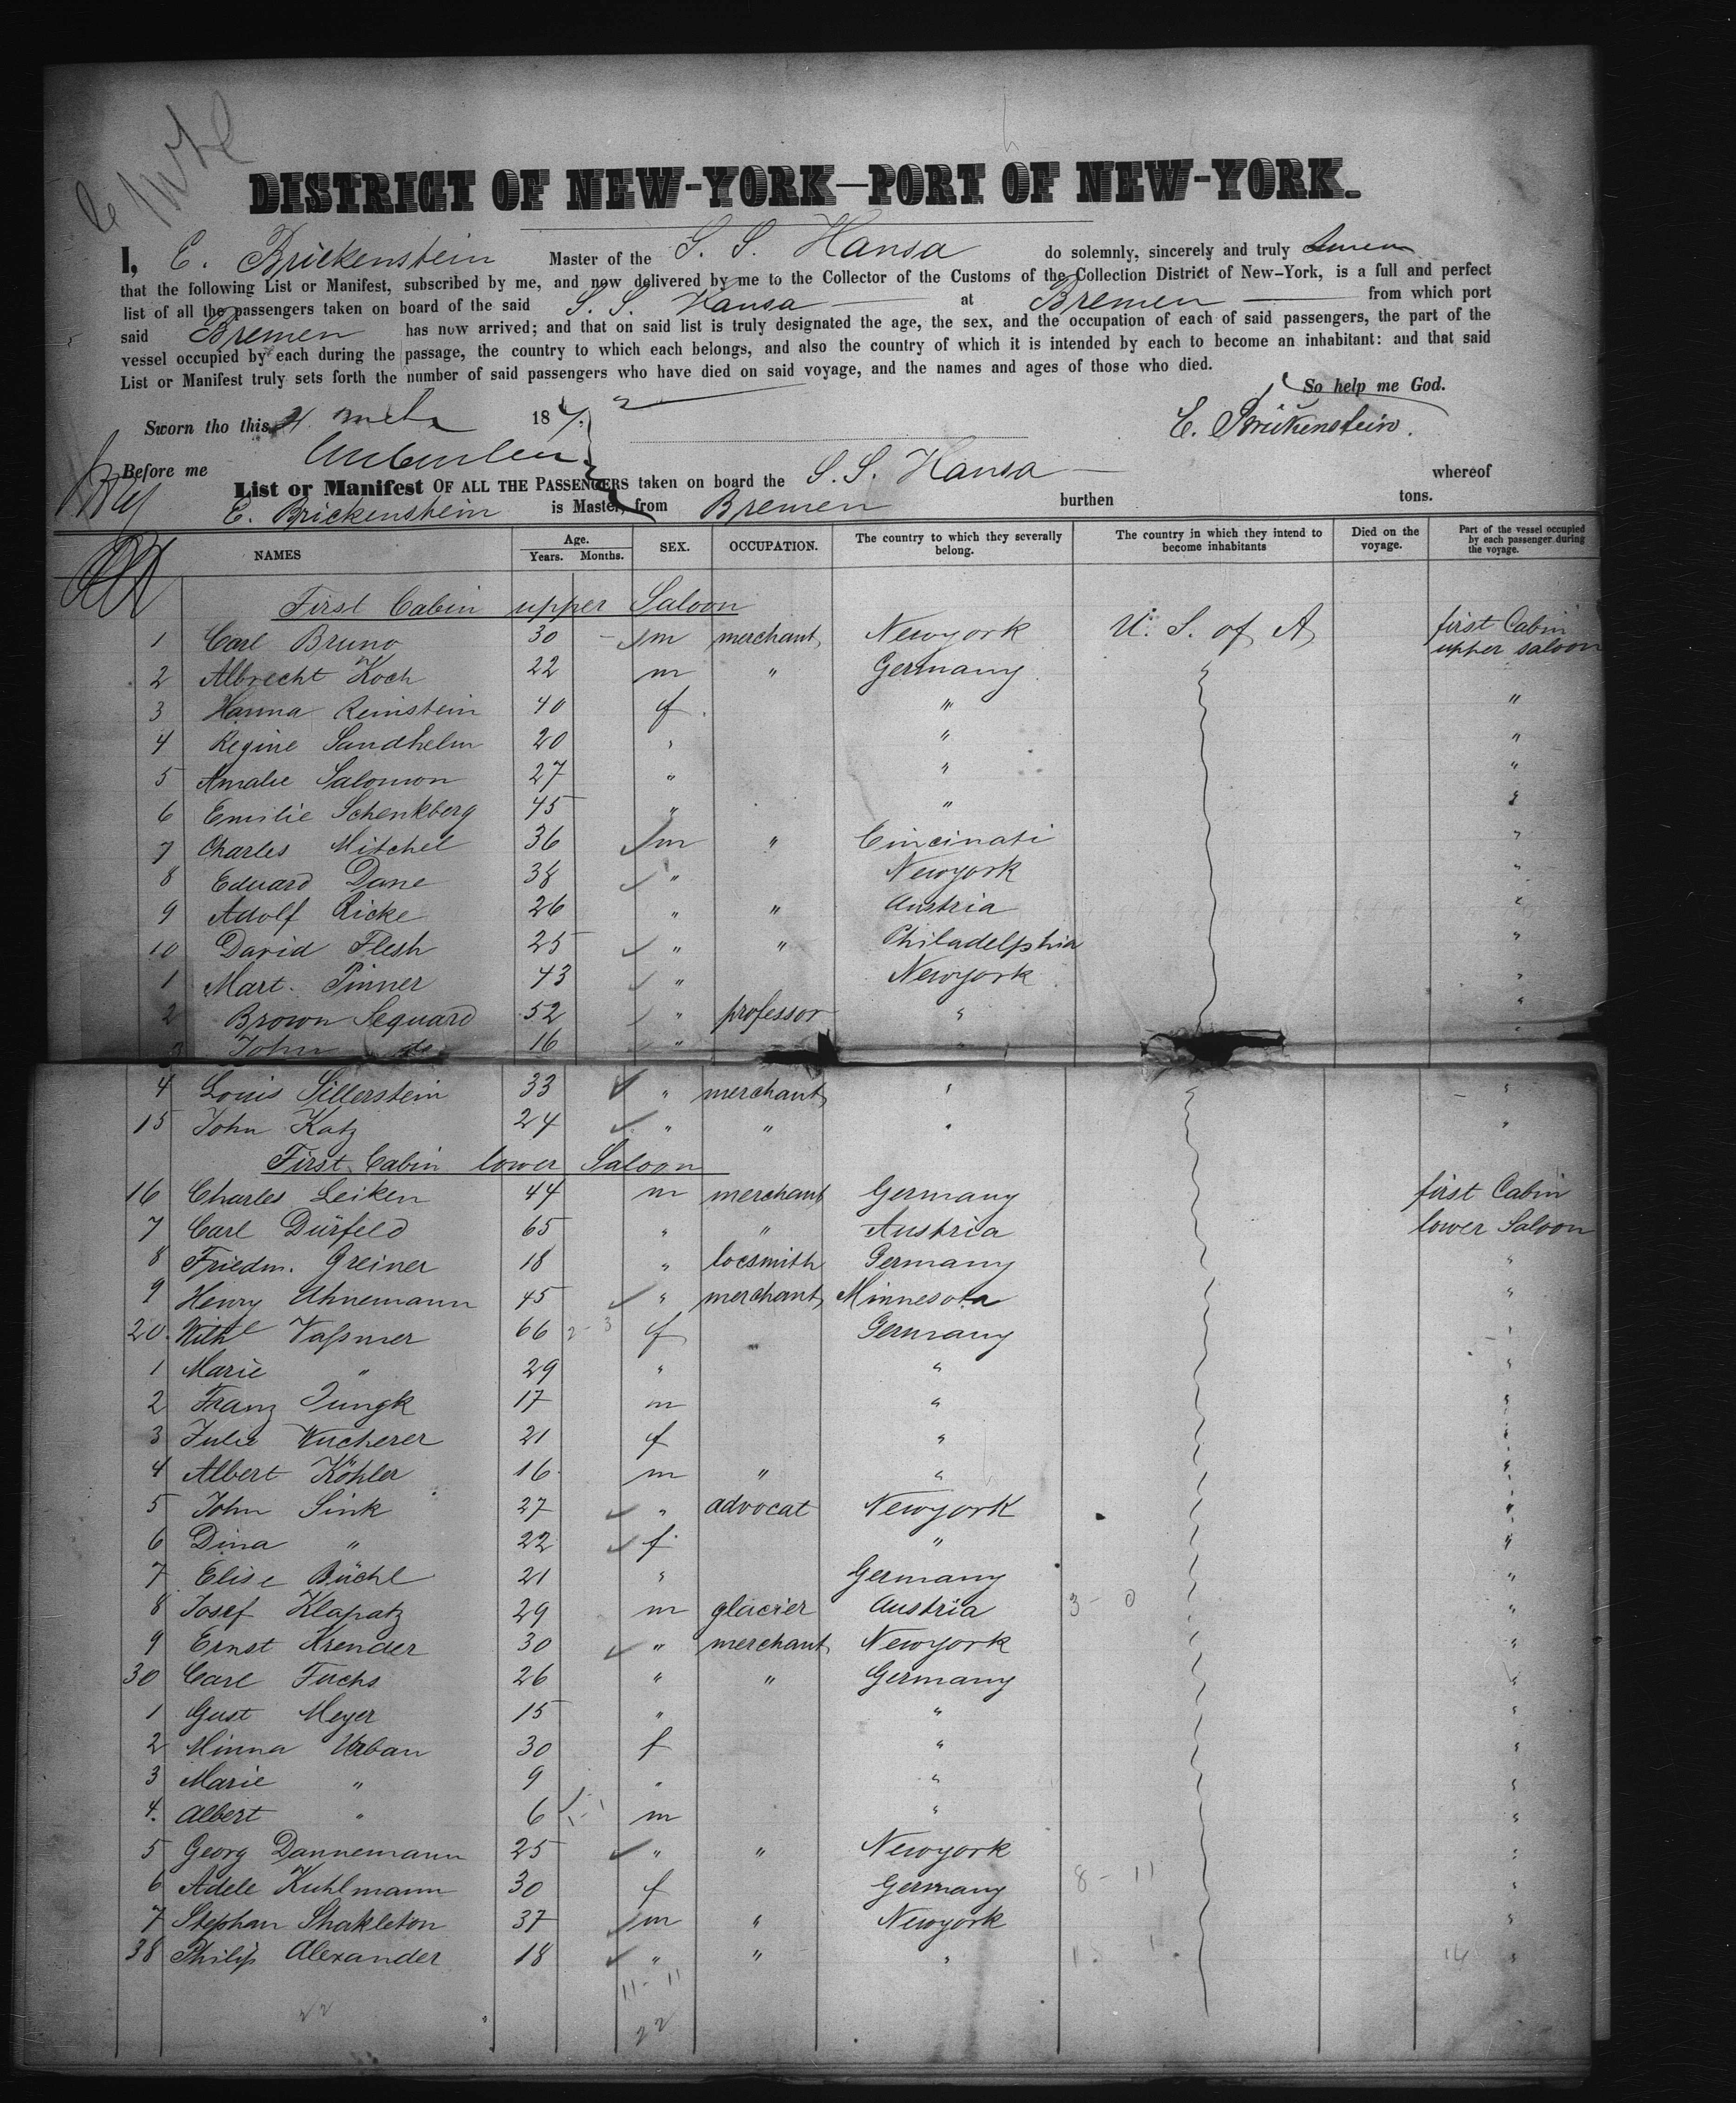 DISTRICT OF NEW-YORK—PORT OF NEW-YORK.
I, E. Brickenstein Master of the S. S. Hansa do solemnly, sincerely and truly swear
that the following List or Manifest, subscribed by me, and now delivered by me to the Collector of the Customs of the Collection District of New-York, is a full and perfect
list of all the passengers taken on board of the said S. S. Hansa at Bremen from which port
said Bremen has now arrived; and that on said list is truly designated the age, the sex, and the occupation of each of said passengers, the part of the
vessel occupied by each during the passage, the country to which each belongs, and also the country of which it is intended by each to become an inhabitant: and that said
List or Manifest truly sets forth the number of said passengers who have died on said voyage, and the names and ages of those who died.
So help me God.
Sworn tho this 187
E. Brickenstein.
Before me
List or Manifest OF ALL THE PASSENGERS taken on board the S. S. Hansa whereof
E. Brickenstein is Master, from Bremen burthen tons.
NAMES Age. Years. Months. SEX. OCCUPATION. The country to which they severally belong. The country in which they intend to become inhabitants Died on the voyage. Part of the vessel occupied by each passenger during the voyage.
First Cabin upper Saloon
1 Carl Bruno 30 - m merchant Newyork U. S. of A first Cabin upper saloon
2 Albrecht Koch 22 m " Germany "
3 Hanna Reinstein 40 f. " "
4 Regine Sandhelm 20 " " "
5 Amalie Salomon 27 " " "
6 Emilie Schenkberg 45 " " "
7 Charles Mitchel 36 m " Cincinati "
8 Eduard Dane 38 " Newyork "
9 Adolf Ricke 26 " " Austria "
10 David Flesh 25 " " Philadelphia "
1 Mart. Pinner 43 " Newyork "
2 Brown Sequard 52 " professor " "
3 John do 16 " "
4 Louis Sillerstein 33 " merchant " "
15 John Katz 24 " " " "
First Cabin lower Saloon
16 Charles Leiken 44 m merchant Germany first Cabin
7 Carl Dürfeld 65 " " Austria lower Saloon
8 Friedm. Greiner 18 " locsmith Germany "
9 Henry Ahnemann 45 " merchant Minnesota "
20 Wilhl Vaßmer 66 2-3 f Germany "
1 Marie " 29 " " "
2 Franz Jungk 17 m " "
3 Julie Wucherer 21 f " "
4 Albert Köhler 16 m " " "
5 John Sink 27 " advocat Newyork "
6 Dina " 22 f " "
7 Elise Büchl 21 " Germany "
8 Josef Klapatz 29 m glacier Austria 3 - 0 "
9 Ernst Krender 30 " merchant Newyork "
30 Carl Fuchs 26 " " Germany "
1 Gust Meyer 15 " " "
2 Minna Urban 30 f " "
3 Marie " 9 " " "
4. Albert " 6 m " "
5 Georg Dannemann 25 " " Newyork "
6 Adele Kuhlmann 30 f Germany 8 - 11 "
7 Stephan Shakleton 37 m " Newyork "
38 Philip Alexander 18 " " " 1. 1. 14 "
11 - 11
22 22